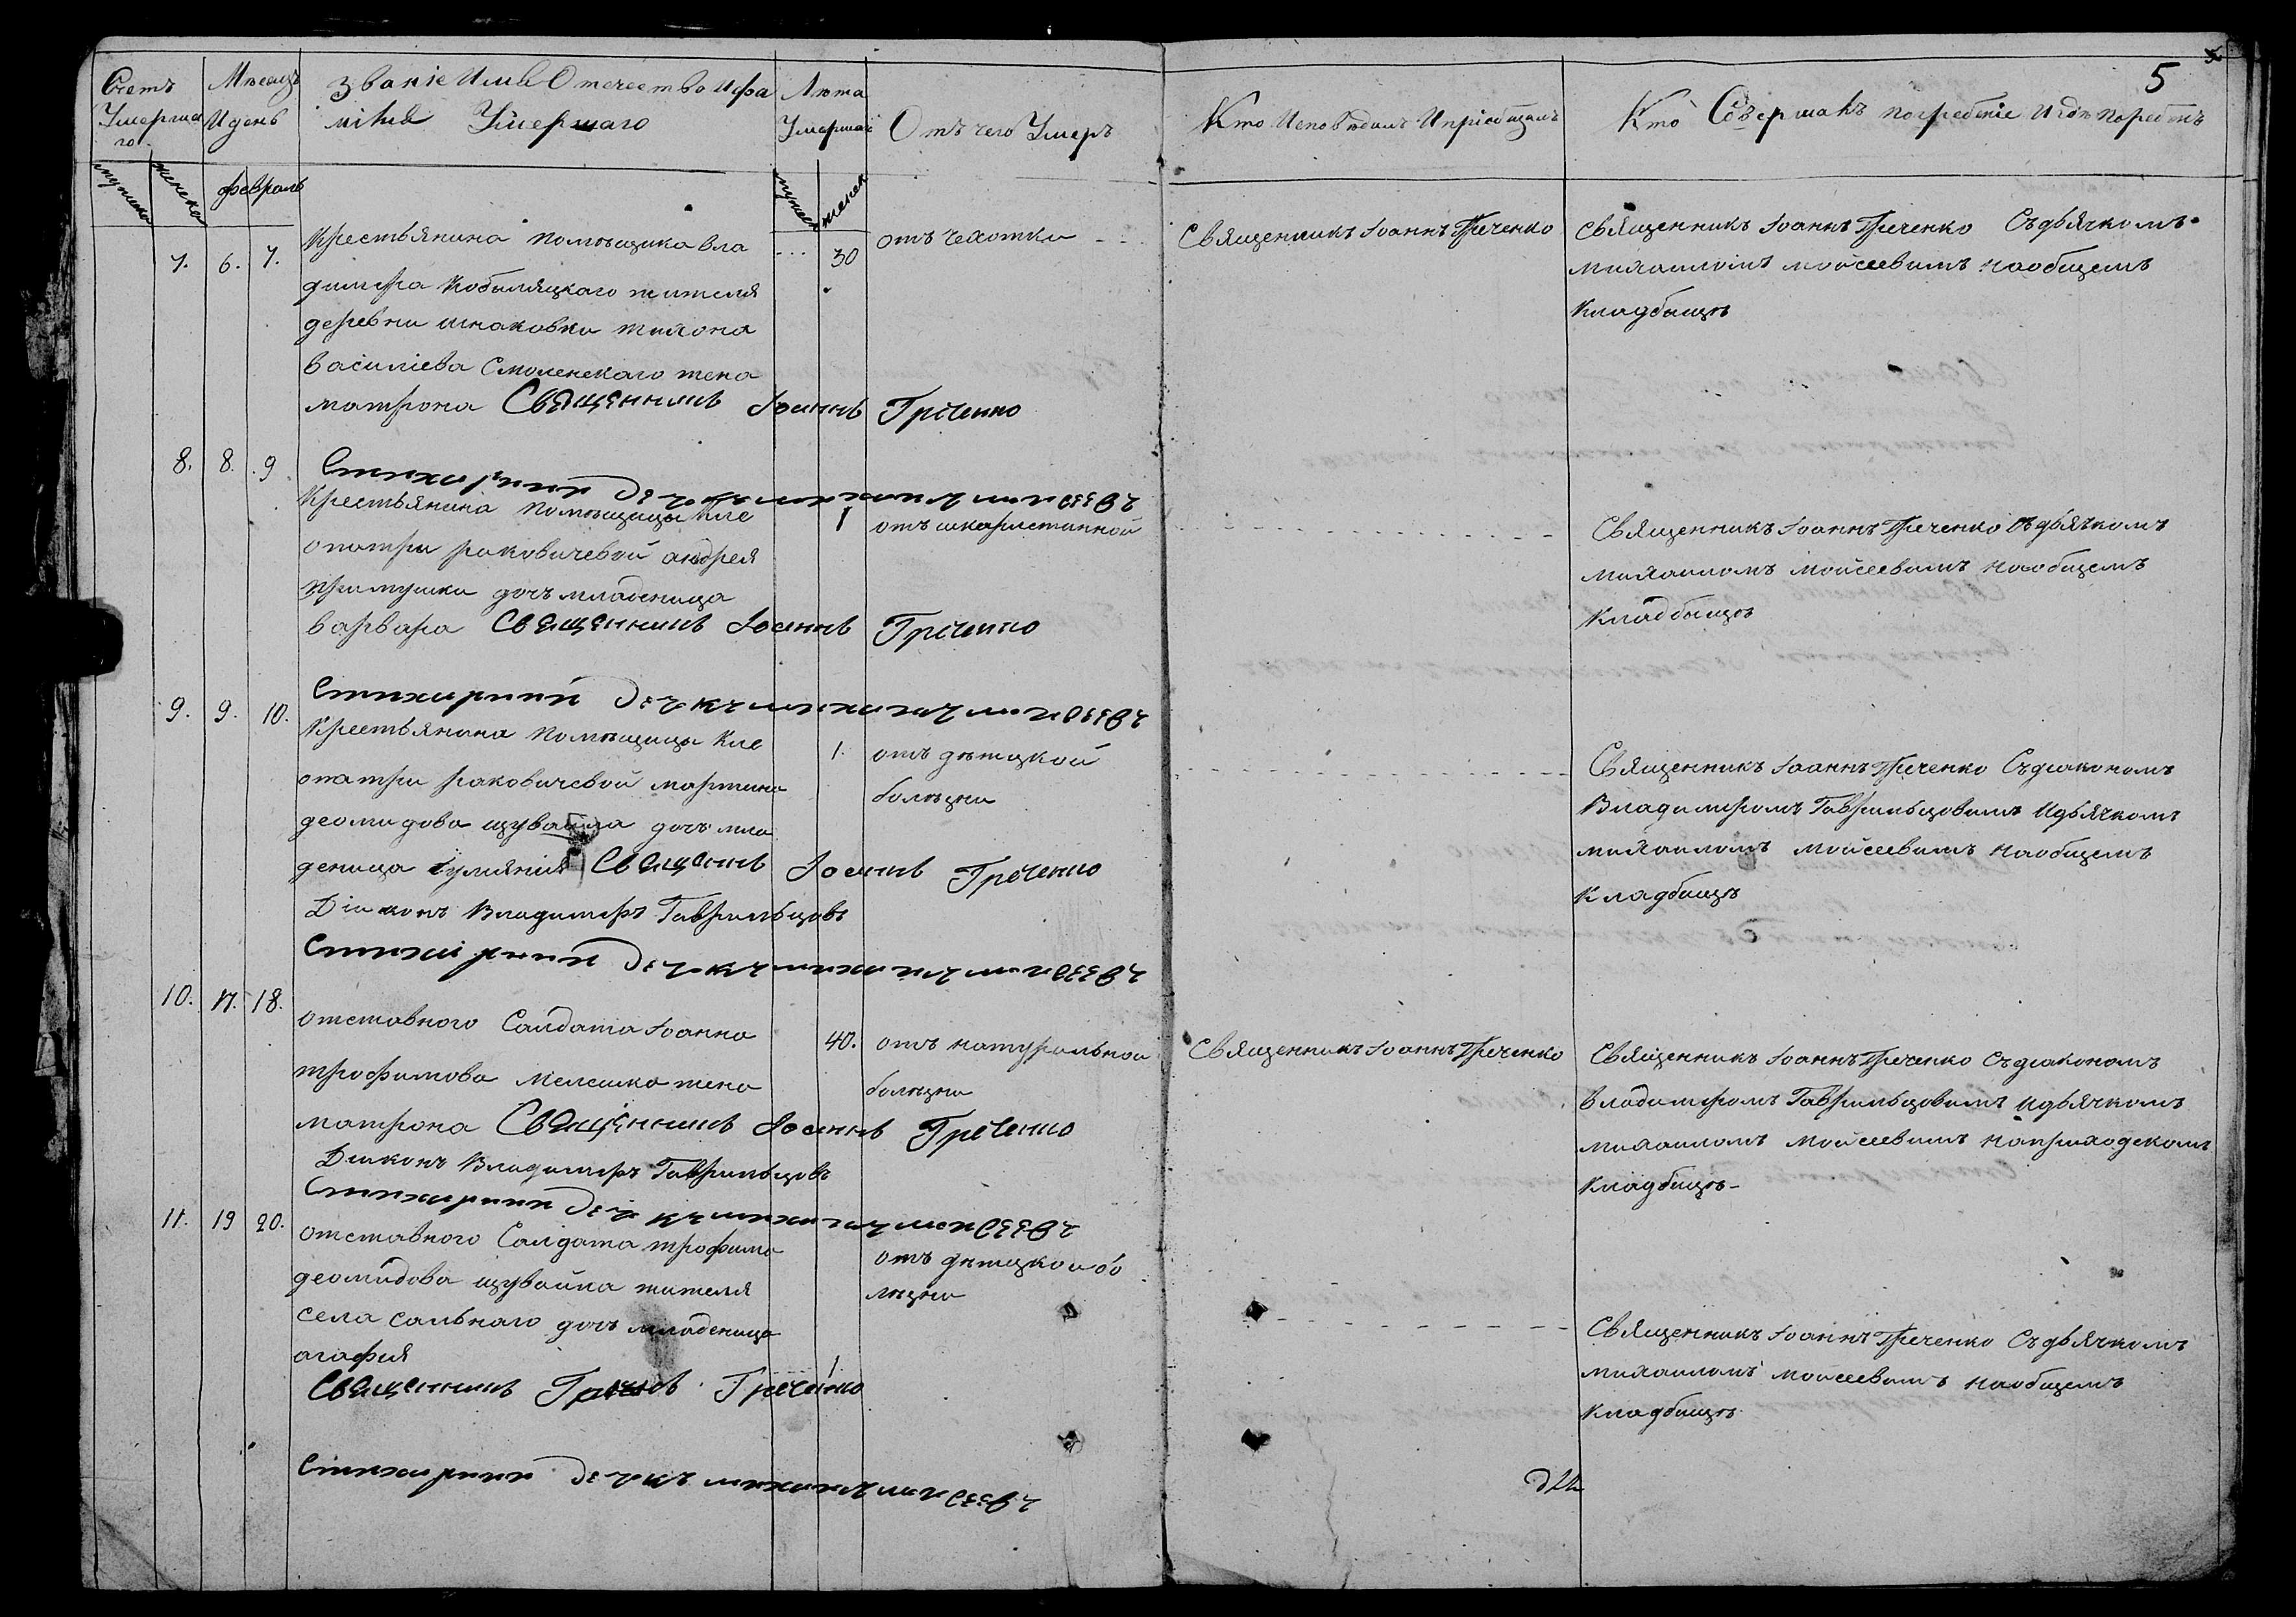 5
Счетъ Умершаго
Мѣсяцъ И день
Званіе Имя Отечество Ифа
милія Умершаго
Лѣта Умершаго
Отъ чего Умеръ
Кто Исповѣдалъ Ипріобщалъ
Кто Совершалъ погребеніе И гдѣ погребенъ
мужеска женска
февраль
мужеск женск
7. 6. 7.
Крестьянина помѣщика вла
димера Кобыляцкаго жителя
деревни шнаковки тихона
василіева Смоленскаго жена
матрона Священникъ Іоаннъ Гріченко
30
отъ чехотки
Священникъ Іоаннъ Греченко
Священникъ Іоаннъ Греченко Съдьячкомъ
михаиломъ мойсеевимъ наобщемъ
кладбищѣ
Стихарний дечекъ михаилъ моисеевъ
8. 8. 9
Крестьянина помѣщицы Кле
опатри раковичевой андрея
примушки дочь младеница
варвара Священникъ Іоаннъ Гріченко
1
отъ шкарлетинной
Священникъ Іоаннъ Греченко Съдьячкомъ
михаиломъ мойсеевимъ наобщемъ
кладбищѣ
Стихарний дечекъ михаилъ моисеевъ
9. 9. 10.
Крестьянина помѣщицы Кле
опатри раковичевой мартина
деомидова щувайла дочь мла
деница іулиянія Священикъ Іоаннъ Греченко
Діаконъ Владимеръ Гаврильцовъ
1.
отъ дѣтцкой
болѣзни
Священникъ Іоаннъ Греченко Съдіакономъ
Владимеромъ Гаврильцовимъ Идьячкомъ
михаиломъ мойсеевимъ наобщемъ
кладбищѣ
Стихарний дечекъ михаилъ моисеевъ
10. 17. 18.
отставного Салдата Іоанна
трофимова Мелешка жена
матрона Священникъ Іоаннъ Греченко
Діаконъ Владимеръ Гаврильцовъ
40.
отъ натуральной
болѣзни
Священникъ Іоаннъ Греченко
Священникъ Іоаннъ Греченко Съдіакономъ
владимеромъ Гаврильцовимъ Идьячкомъ
михаиломъ мойсеевимъ наприходскомъ
кладбищѣ
Стихарний дечекъ михаилъ моисеевъ
11. 19 20.
отставного Салдата трофима
деомидова щувайка жителя
села сальнаго дочь младеница
агафия
Священникъ Греченко
1
отъ дѣтцкой бо
лѣзни
Священникъ Іоаннъ Греченко Съдьячкомъ
михаиломъ мойсеевимъ наобщемъ
кладбищѣ
Стихарний дечекъ михаилъ моисеевъ